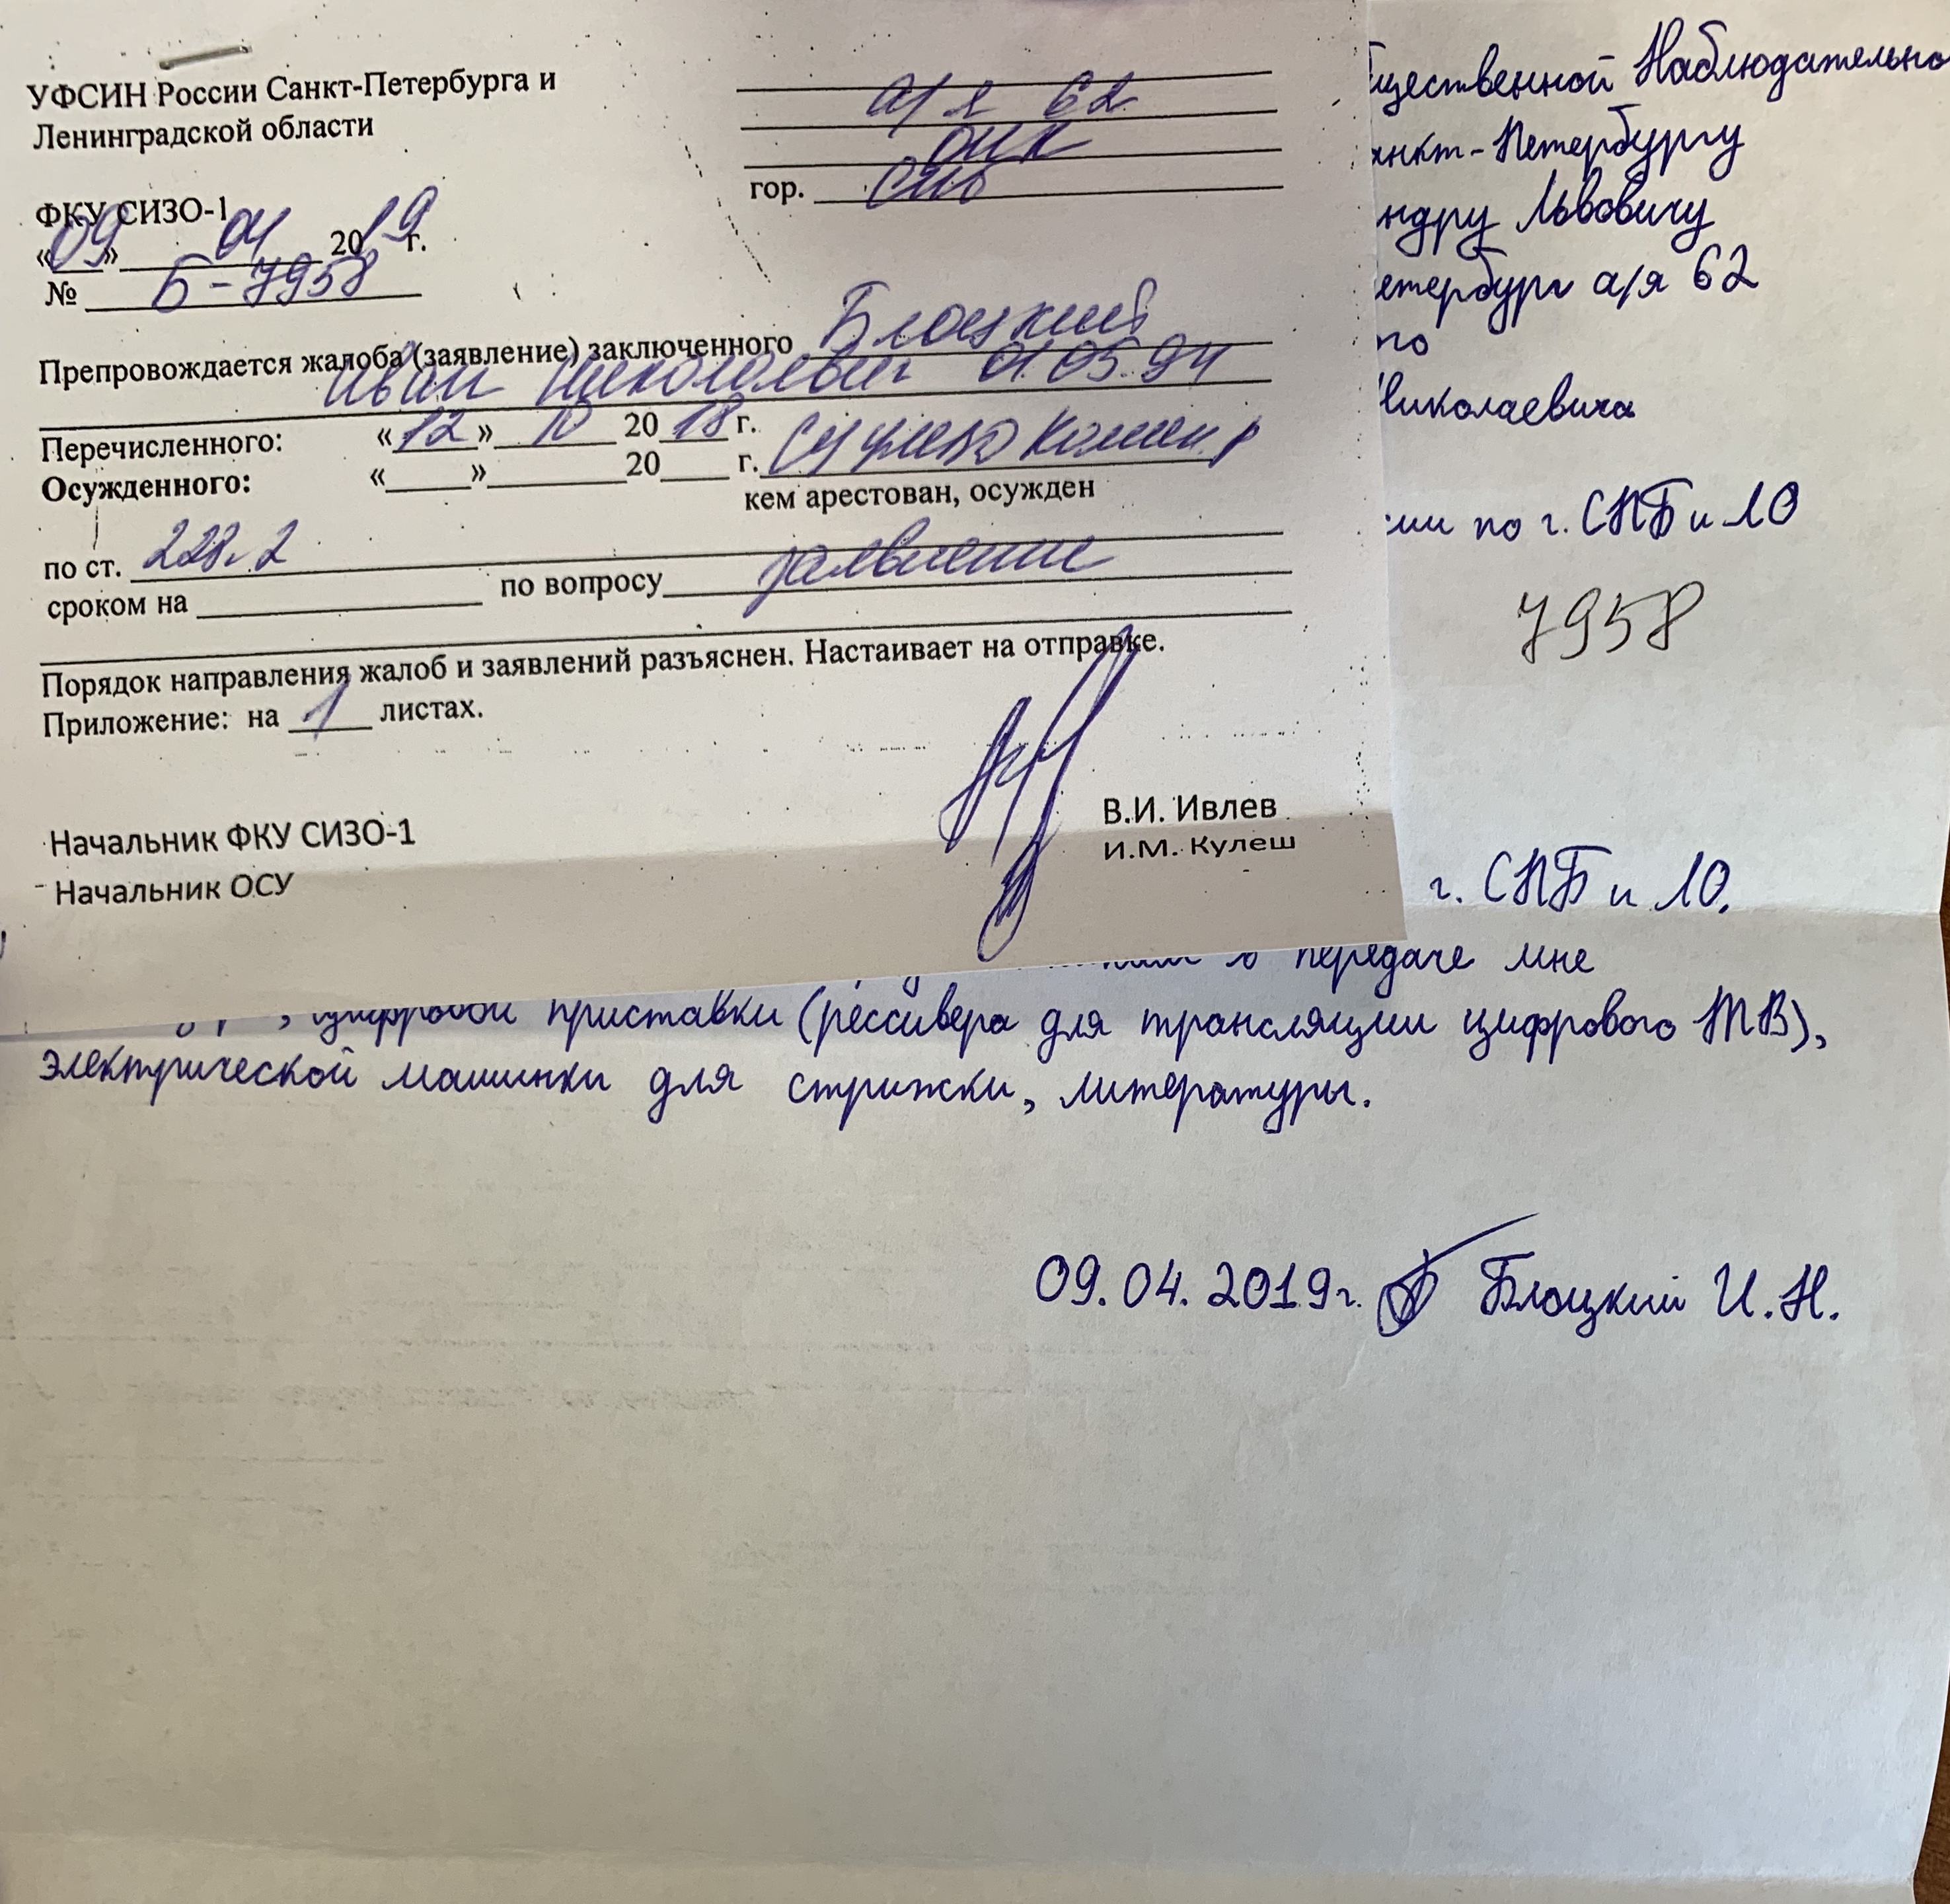 УФСИН России Санкт-Петербурга и
Ленинградской области
ФКУ СИЗО-1
«09» 04 2019 г.
№ Б-7958
а/я 62
ОНК
гор. СПб
Препровождается жалоба (заявление) заключенного Блоцкий
Иван Николаевич 01.05.94
Перечисленного: «12» 10 2018 г.
Осужденного: «___» ______ 20___ г.
кем арестован, осужден
по ст. 228.2
сроком на ______ по вопросу заявление
Порядок направления жалоб и заявлений разъяснен. Настаивает на отправке.
Приложение: на 1 листах.
Начальник ФКУ СИЗО-1 В.И. Ивлев
Начальник ОСУ И.М. Кулеш
щественной Наблюдательно
анкт-Петербургу
ндру Львовичу
етербург а/я 62
го
Николаевича
сии по г. СПБ и ЛО
7958
г. СПБ и ЛО.
о передаче мне
, цифровой приставки (рессивера для трансляции цифрового ТВ),
электрической машинки для стрижки, литературы.
09.04.2019г. Блоцкий И.Н.